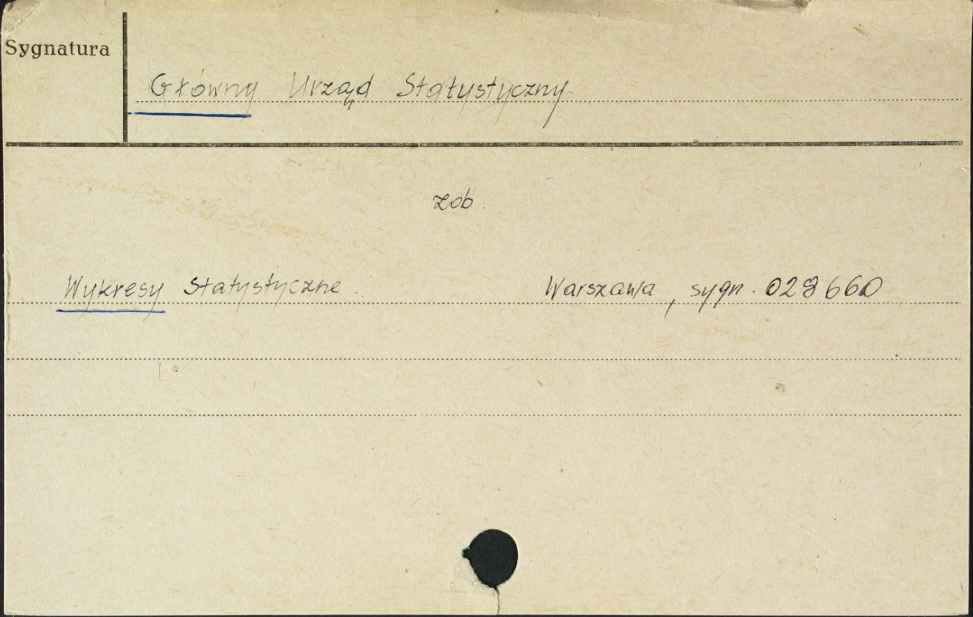 Sygnatura
Główny Urząd Statystyczny
zob.
Wykresy Statystyczne. Warszawa, sygn. 028660